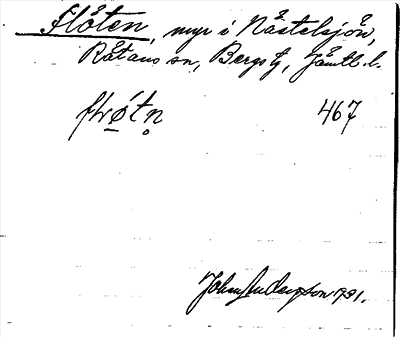 Flöten, myr i Nästelsjön,
Rätans sn, Bergs tg, Jämtl. l.
flǿ̱tn̥ 467
John Anderson 1931.